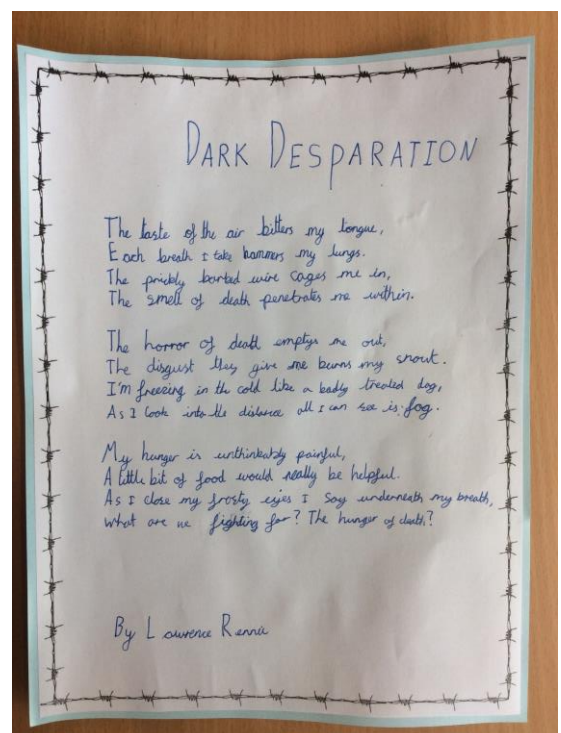 DARK DESPARATION
The taste of the air bitters my tongue,
Each breath I take hammers my lungs.
The prickly barbed wire cages me in,
The smell of death penetrates me within.
The horror of death emptys me out,
The disgust they give me burns my snout.
I'm freezing in the cold like a badly treated dog,
As I look into the distance all I can see is fog.
My hunger is unthinkably painful,
A little bit of food would really be helpful.
As I close my frosty eyes I say underneath my breath,
What are we fighting for? The hunger of death?
By Lawrence Rennie